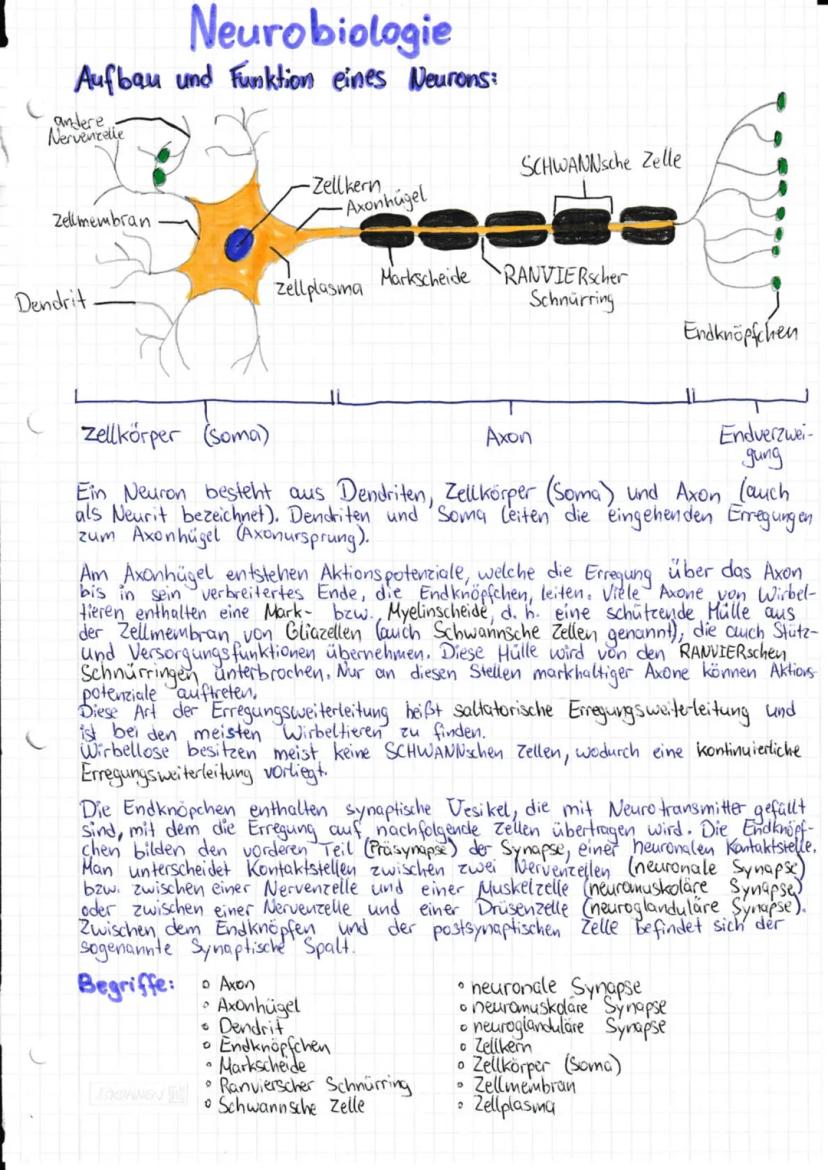 Neurobiologie
Aufbau und Funktion eines Neurons:
andere
Nervenzelle
Zellkern
SCHWANNsche Zelle
Axonhügel
Zellmembran
Zellplasma
Markscheide
RANVIERscher
Schnürring
Dendrit
Endknöpfchen
Zellkörper (Soma)
Axon
Endverzwei-
gung
Ein Neuron besteht aus Dendriten, Zellkörper (Soma) und Axon (auch
als Neurit bezeichnet). Dendriten und Soma leiten die eingehenden Erregungen
zum Axonhügel (Axonursprung).
Am Axonhügel entstehen Aktionspotenziale, welche die Erregung über das Axon
bis in sein verbreitertes Ende, die Endknöpfchen, leiten. Viele Axone von Wirbel-
tieren enthalten eine Mark- bzw. Myelinscheide, d. h. eine schützende Hülle aus
der Zellmembran von Gliazellen (auch Schwannsche Zellen genannt), die auch Stütz-
und Versorgungsfunktionen übernehmen. Diese Hülle wird von den RANVIERschen
Schnürringen unterbrochen. Nur an diesen Stellen markhaltiger Axone können Aktions-
potenziale auftreten.
Diese Art der Erregungsweiterleitung heißt saltatorische Erregungsweiterleitung und
ist bei den meisten Wirbeltieren zu finden.
Wirbellose besitzen meist keine SCHWANNschen Zellen, wodurch eine kontinuierliche
Erregungsweiterleitung vorliegt.
Die Endknöpchen enthalten synaptische Vesikel, die mit Neurotransmitter gefüllt
sind, mit dem die Erregung auf nachfolgende Zellen übertragen wird. Die Endknöpf-
chen bilden den vorderen Teil (Präsynapse) der Synapse, einer neuronalen Kontaktstelle.
Man unterscheidet Kontaktstellen zwischen zwei Nervenzellen (neuronale Synapse)
bzw. zwischen einer Nervenzelle und einer Muskelzelle (neuromuskoläre Synapse)
oder zwischen einer Nervenzelle und einer Drüsenzelle (neuroglanduläre Synapse).
Zwischen dem Endknöpfen und der postsynaptischen Zelle befindet sich der
sogenannte Synaptische Spalt.
Begriffe:
◦ Axon
◦ Axonhügel
◦ Dendrit
◦ Endknöpfchen
◦ Markscheide
◦ Ranvierscher Schnürring
◦ Schwannsche Zelle
◦ neuronale Synapse
◦ neuromuskoläre Synapse
◦ neuroglanduläre Synapse
◦ Zellkern
◦ Zellkörper (Soma)
◦ Zellmembran
◦ Zellplasma